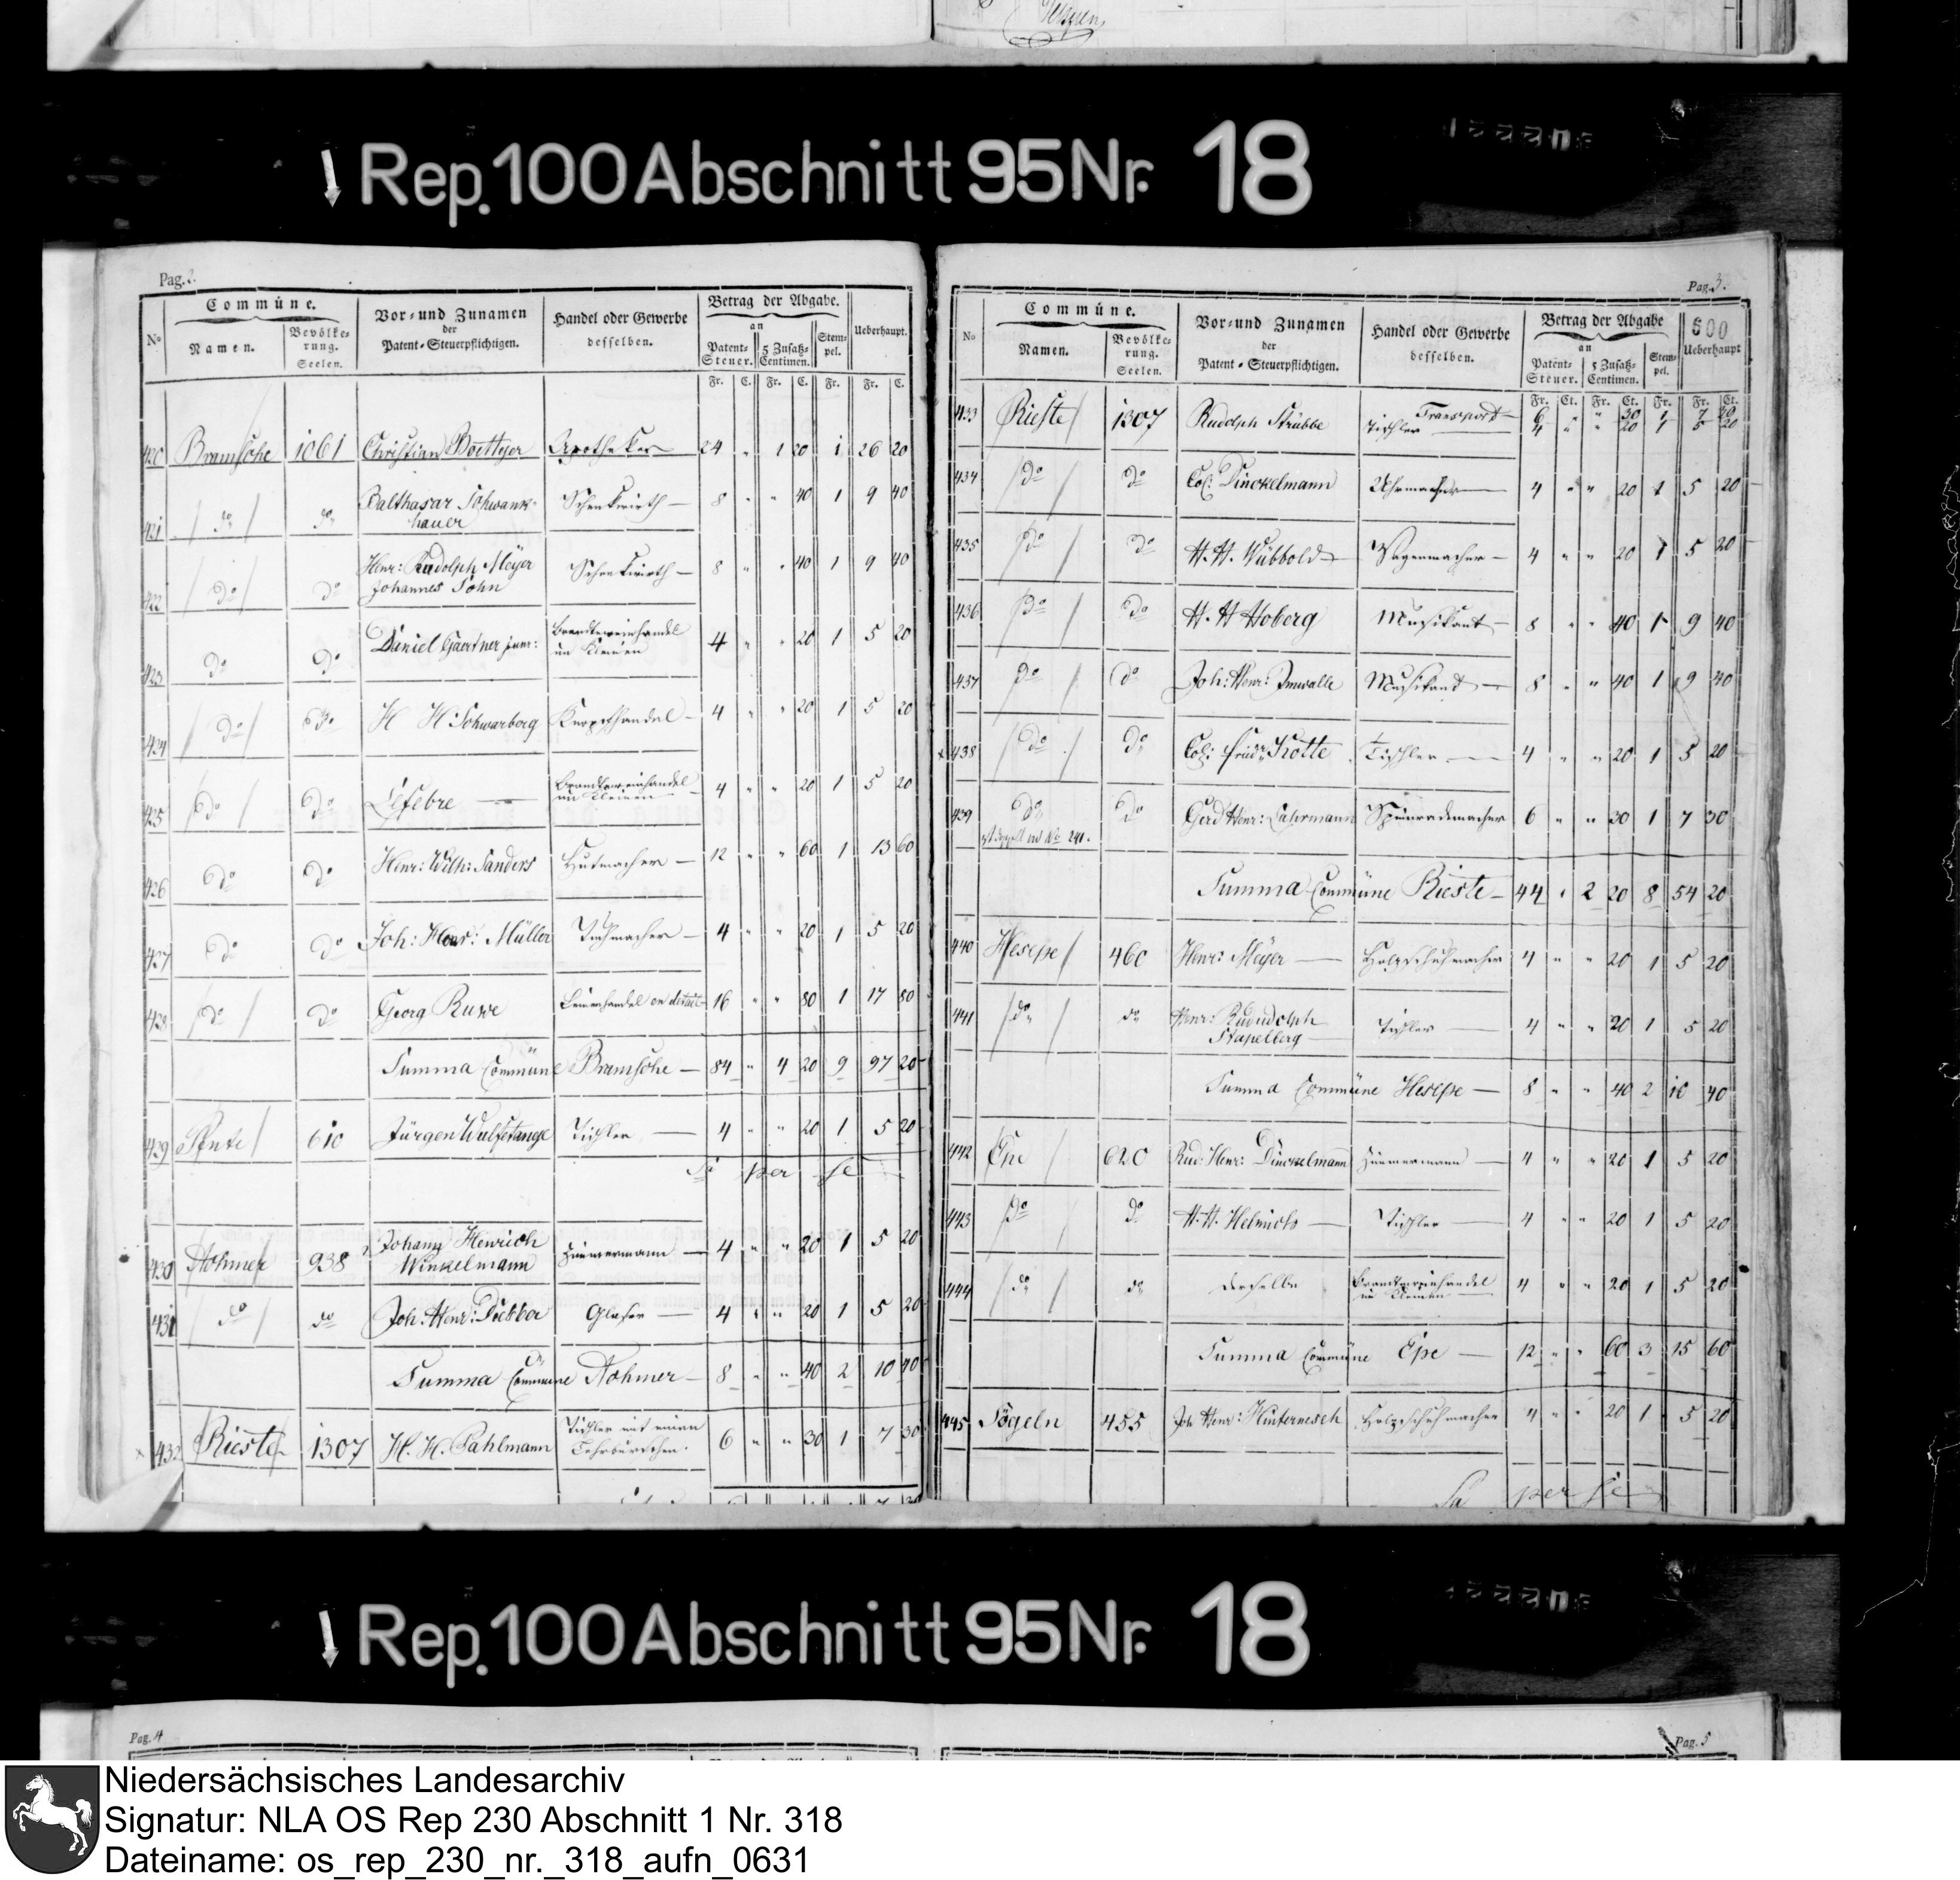 Rep. 100 Abschnitt 95 Nr. 18
Pag. 2.
No Commüne. Vor= und Zunamen der Patent=Steuerpflichtigen. Handel oder Gewerbe desselben. Betrag der Abgabe. Ueberhaupt.
Namen. Bevölke=rung. Seelen. an Patent=Steuer. 5 Zusatz=Centimen. Stem=pel.
Fr. C. Fr. C. Fr. Fr. C.
420 Bramsche 1061 Christian Boettger Apotheker 24 " 1 20 1 26 20
421 do do Balthasar Schwank=
hauer Schenkwirth 8 " " 40 1 9 40
422 do do Henr: Rudolph Meÿer
Johannes Sohn Schenkwirth 8 " " 40 1 9 40
423 do do Daniel Gaertner junr: Brandtweinhandel
im Kleinen 4 " " 20 1 5 20
424 do do H H: Schwarberg 4 " " 20 1 5 20
425 do do Lefebre Brandtweinhandel
im Kleinen 4 " " 20 1 5 20
426 do do Henr: Wilh: Sanders Hutmacher 12 " " 60 1 13 60
427 do do Joh: Henr: Müller Tuchmacher 4 " " 20 1 5 20
428 do do Georg Ruwe en detail 16 " " 80 1 17 80
Summa Commüne Bramsche 84 " 4 20 9 97 20
429 Pente 610 Jürgen Wulfetange Tischler 4 " " 20 1 5 20
Sa per se
430 Achmer 938 Johann Henrich
Winkelmann Zimmermann 4 " " 20 1 5 20
431 do do Joh: Henr: Dobber Glaser 4 " " 20 1 5 20
Summa Commüne Achmer 8 " " 40 2 10 40
432 Rieste 1307 H. H. Pahlmann Tischler mit einem
Lehrburschen. 6 " " 30 1 7 30
Pag. 3.
500
No Commüne. Vor=und Zunamen der Patent=Steuerpflichtigen. Handel oder Gewerbe desselben. Betrag der Abgabe Ueberhaupt
Namen. Bevölke=rung. Seelen. an Patent=Steuer. 5 Zusatz=Centimen. Stem=pel.
Fr. Ct. Fr. Ct. Fr. Fr. Ct.
Transport 6 " " 30 1 7 30
433 Rieste 1307 Rudolph Strübbe Tischler 4 " " 20 1 5 20
434 do do Col: Dinckelmann Uhrmacher 4 " " 20 1 5 20
435 do do H. H. Wübbold Wagenmacher 4 " " 20 1 5 20
436 do do H. H Hoberg Musikant 8 " " 40 1 9 40
437 do do Joh: Henr: Imwalle Musikant 8 " " 40 1 9 40
438 do do Col: Fridr Kotte Tischler 4 " " 20 1 5 20
439 do do Gerd Henr: Lührmann Spinnrademacher 6 " " 30 1 7 30
No 241.
Summa Commüne Rieste 44 " 2 20 8 54 20
440 Hesepe 460 Henr: Meÿer Holzschuhmacher 4 " " 20 1 5 20
441 do do Henr: Rududolph
Stapelberg Tischler 4 " " 20 1 5 20
Summa Commüne Hesepe 8 " " 40 2 10 40
442 Epe 620 Rud: Henr: Dinckelmann Zimmermann 4 " " 20 1 5 20
443 do do H. H. Helmichs Tischler 4 " " 20 1 5 20
444 do do derselbe Brandtweinhandel
im Kleinen 4 " " 20 1 5 20
Summa Commüne Epe 12 " " 60 3 15 60
445 Sögeln 455 Joh Henr: Hinternesch Holzschuhmacher 4 " " 20 1 5 20
Sa per se
Rep. 100 Abschnitt 95 Nr. 18
Pag. 4
Pag. 5
Niedersächsisches Landesarchiv
Signatur: NLA OS Rep 230 Abschnitt 1 Nr. 318
Dateiname: os_rep_230_nr._318_aufn_0631